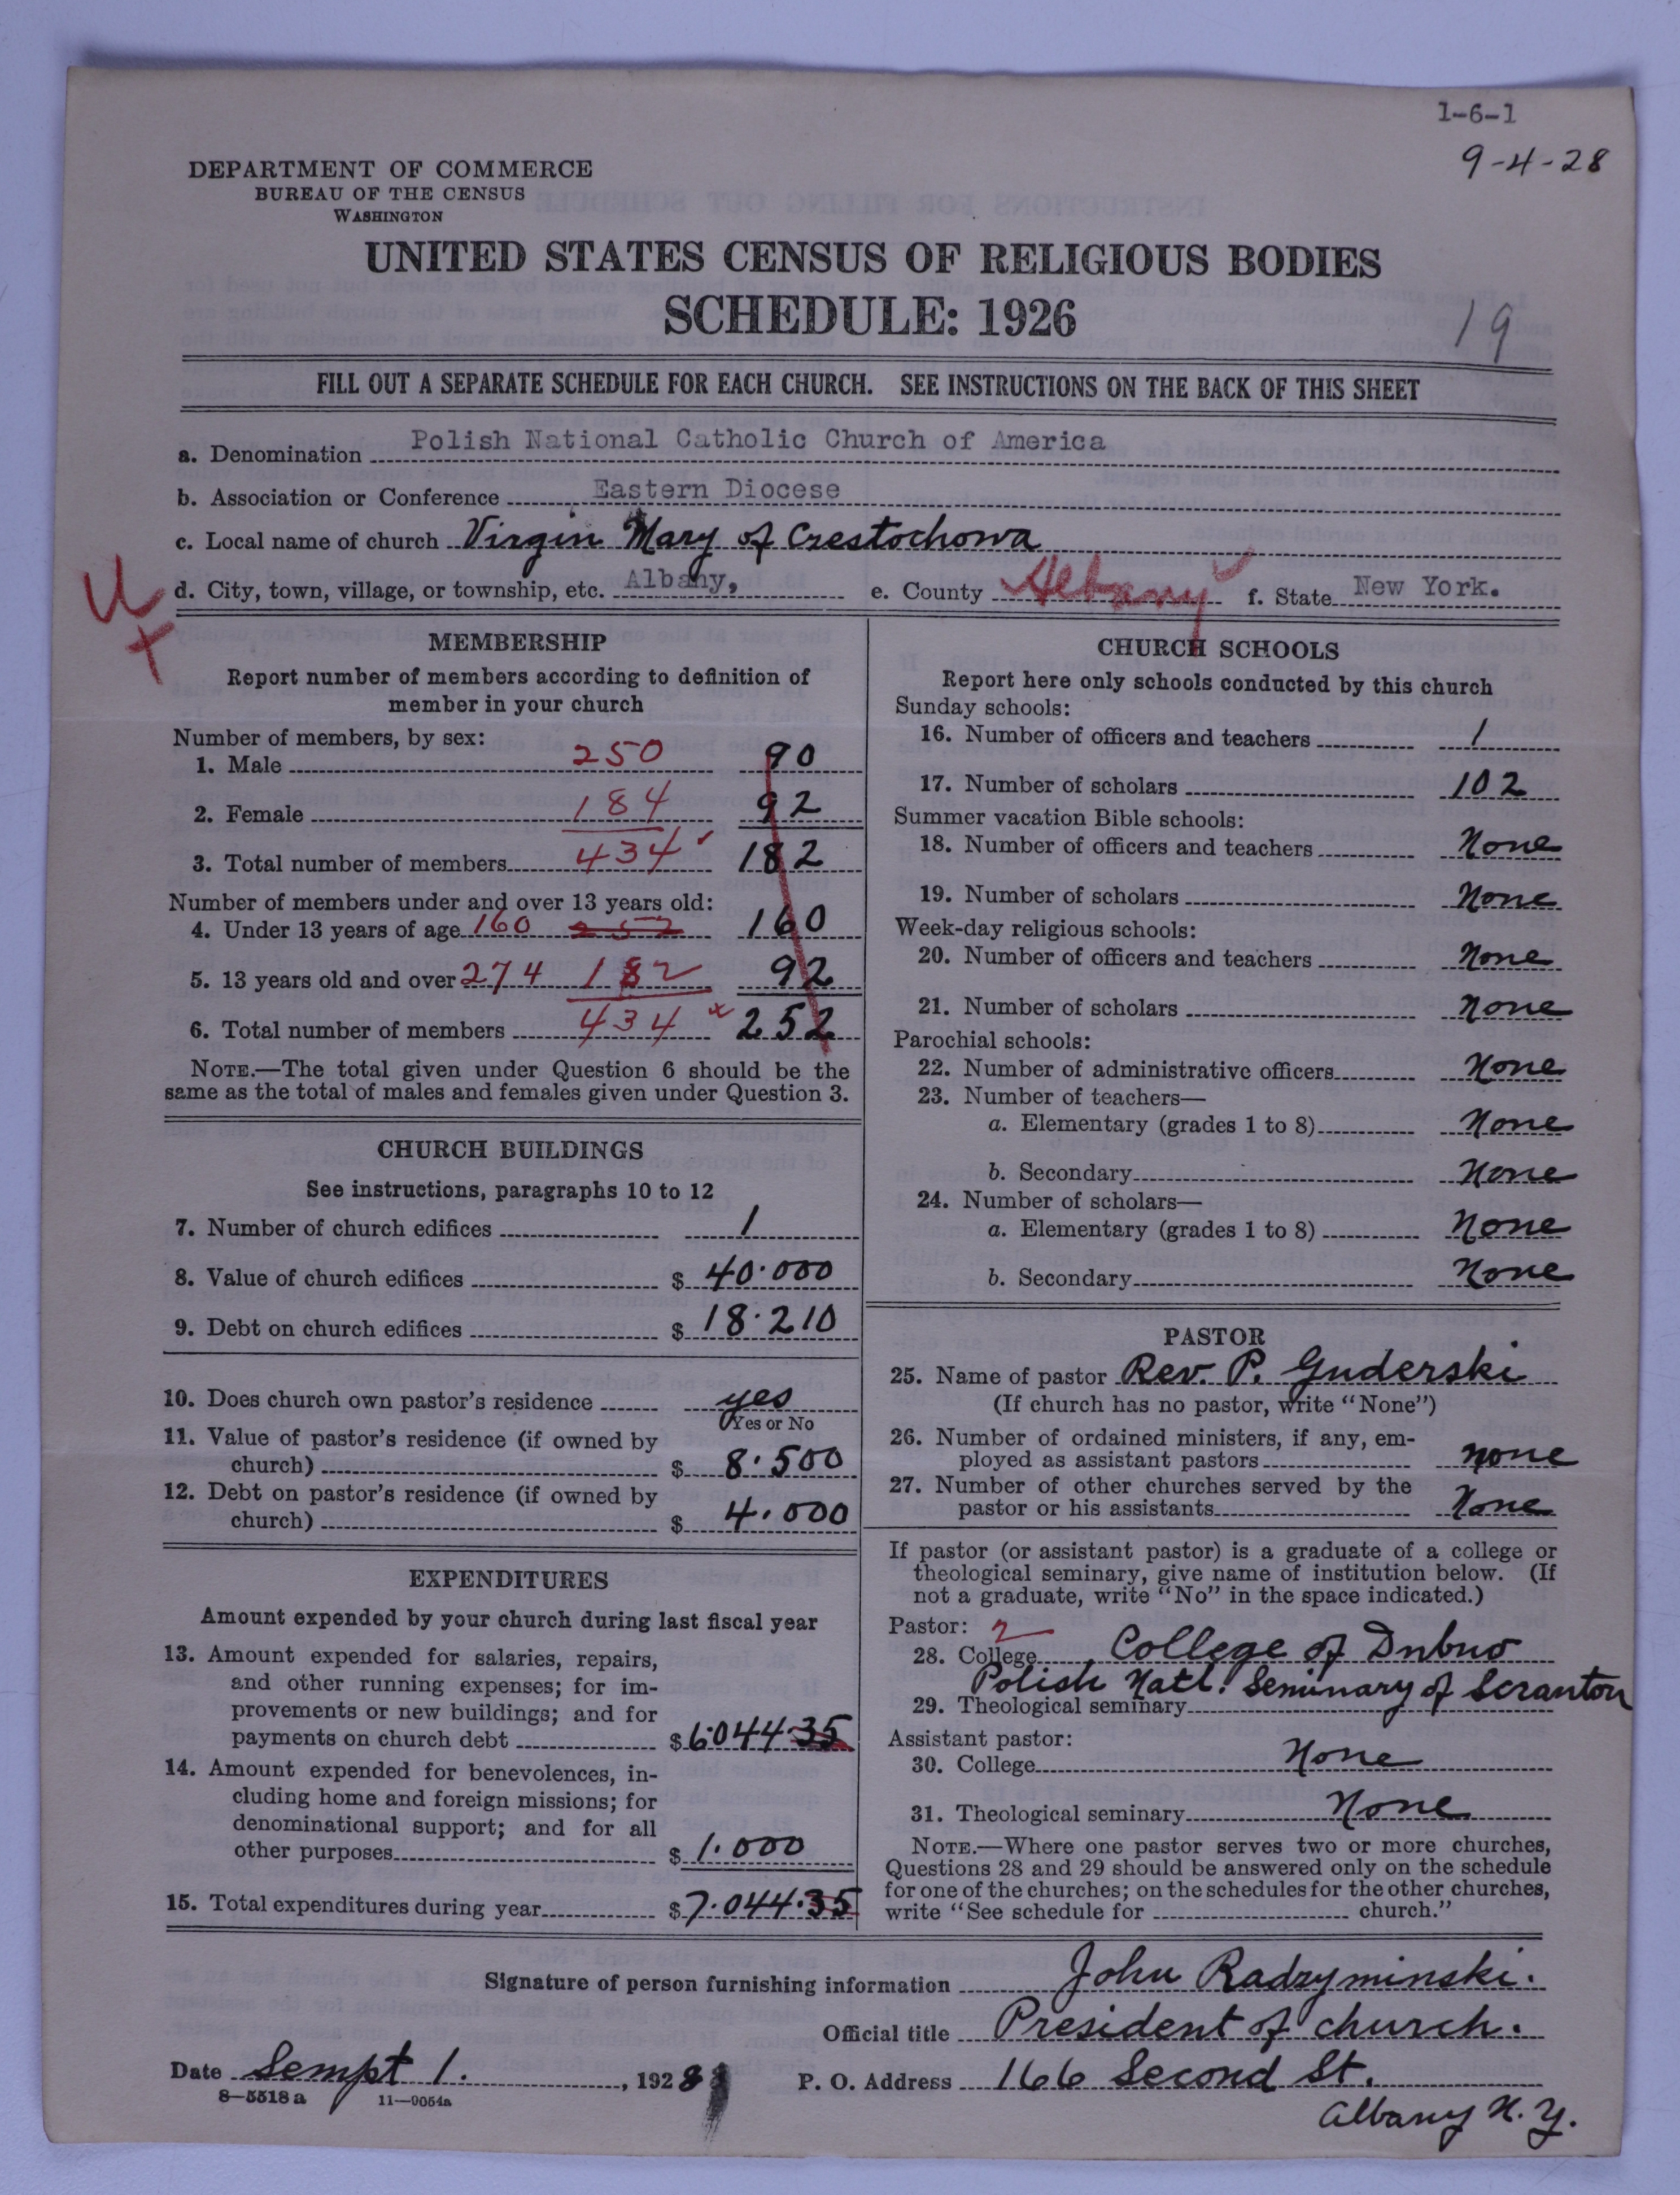 1-6-1
9-4-28
DEPARTMENT OF COMMERCE
BUREAU OF THE CENSUS
WASHINGTON
UNITED STATES CENSUS OF RELIGIOUS BODIES
SCHEDULE: 1926
19
FILL OUT A SEPARATE SCHEDULE FOR EACH CHURCH. SEE INSTRUCTIONS ON THE BACK OF THIS SHEET
a. Denomination Polish National Catholic Church of America
b. Association or Conference Eastern Diocese
c. Local name of church Virgin Mary of Czestochowa
d. City, town, village, or township, etc. Albany, e. County Albany f. State New York.
MEMBERSHIP
Report number of members according to definition of
member in your church
Number of members, by sex:
1. Male 250 90
2. Female 184 92
3. Total number of members 434 182
Number of members under and over 13 years old:
4. Under 13 years of age 160 252 160
5. 13 years old and over 274 182 92
6. Total number of members 434 252
NOTE.—The total given under Question 6 should be the
same as the total of males and females given under Question 3.
CHURCH BUILDINGS
See instructions, paragraphs 10 to 12
7. Number of church edifices 1
8. Value of church edifices $ 40.000
9. Debt on church edifices $ 18.210
10. Does church own pastor's residence yes
Yes or No
11. Value of pastor's residence (if owned by
church) $ 8.500
12. Debt on pastor's residence (if owned by
church) $ 4.000
EXPENDITURES
Amount expended by your church during last fiscal year
13. Amount expended for salaries, repairs,
and other running expenses; for im-
provements or new buildings; and for
payments on church debt $ 6.044.35
14. Amount expended for benevolences, in-
cluding home and foreign missions; for
denominational support; and for all
other purposes $ 1.000
15. Total expenditures during year $ 7.044.35
CHURCH SCHOOLS
Report here only schools conducted by this church
Sunday schools:
16. Number of officers and teachers 1
17. Number of scholars 102
Summer vacation Bible schools:
18. Number of officers and teachers None
19. Number of scholars None
Week-day religious schools:
20. Number of officers and teachers None
21. Number of scholars None
Parochial schools:
22. Number of administrative officers None
23. Number of teachers—
a. Elementary (grades 1 to 8) None
b. Secondary None
24. Number of scholars—
a. Elementary (grades 1 to 8) None
b. Secondary None
PASTOR
25. Name of pastor Rev. P. Guderski
(If church has no pastor, write "None")
26. Number of ordained ministers, if any, em-
ployed as assistant pastors none
27. Number of other churches served by the
pastor or his assistants None
If pastor (or assistant pastor) is a graduate of a college or
theological seminary, give name of institution below. (If
not a graduate, write "No" in the space indicated.)
Pastor: 2
28. College College of Dubno
Polish Natl. Seminary of Scranton
29. Theological seminary
Assistant pastor:
30. College None
31. Theological seminary None
NOTE.—Where one pastor serves two or more churches,
Questions 28 and 29 should be answered only on the schedule
for one of the churches; on the schedules for the other churches,
write "See schedule for church."
Signature of person furnishing information John Radzyminski.
Official title President of church.
Date Sempt 1. , 1928 P. O. Address 166 Second St.
8—5518 a 11—9054a
Albany N.Y.